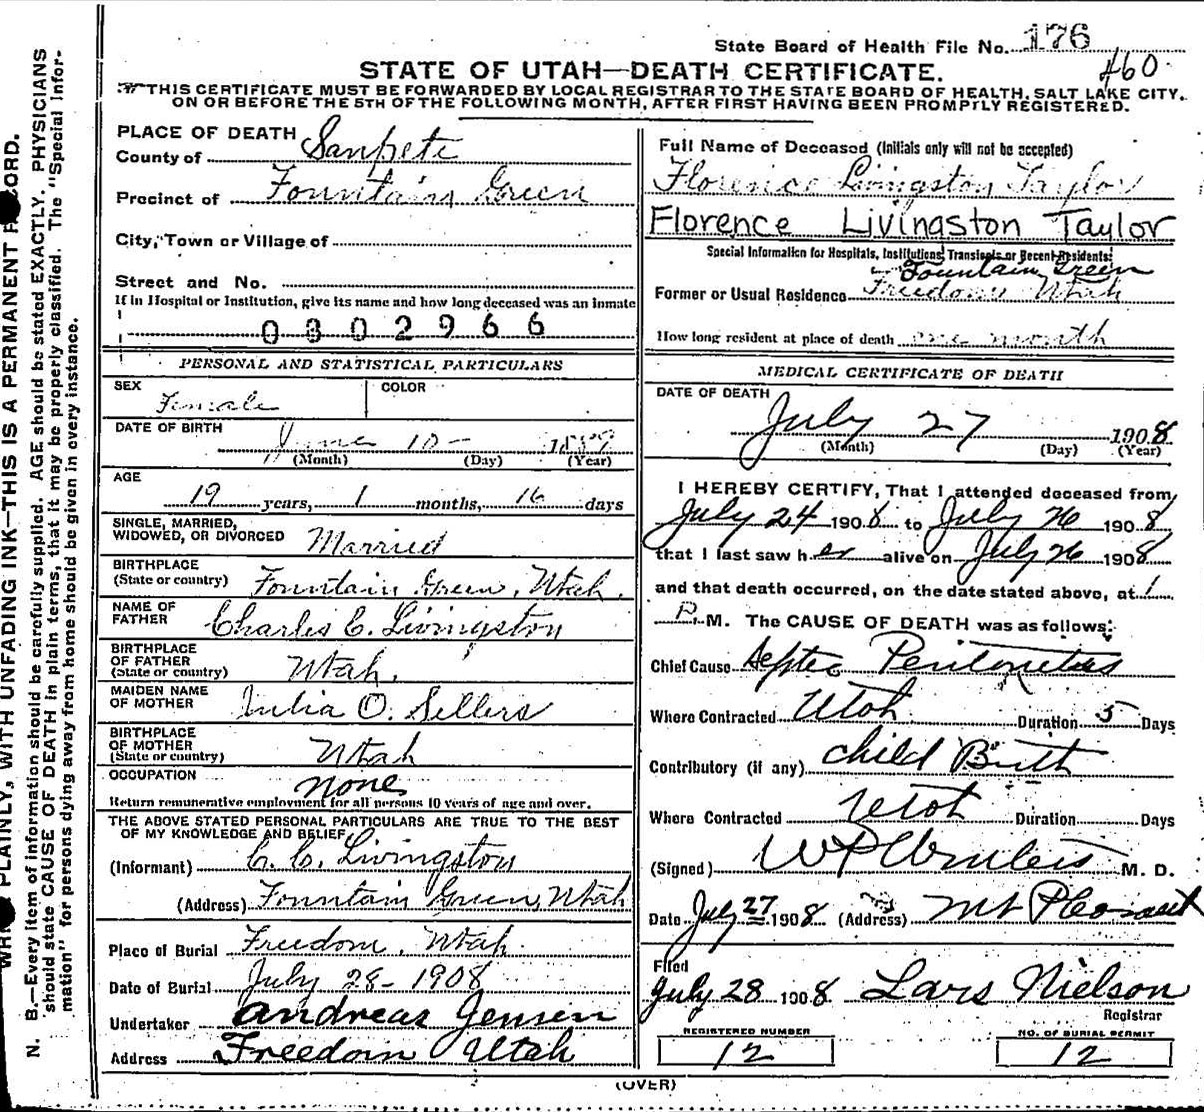 State Board of Health File No. 176
460
STATE OF UTAH—DEATH CERTIFICATE.
THIS CERTIFICATE MUST BE FORWARDED BY LOCAL REGISTRAR TO THE STATE BOARD OF HEALTH, SALT LAKE CITY,
ON OR BEFORE THE 5TH OF THE FOLLOWING MONTH, AFTER FIRST HAVING BEEN PROMPTLY REGISTERED.
PLACE OF DEATH
County of Sanpete
Precinct of Fountain Green
City, Town or Village of
Street and No.
If in Hospital or Institution, give its name and how long deceased was an inmate
0302966
PERSONAL AND STATISTICAL PARTICULARS
SEX Female COLOR
DATE OF BIRTH June 10 - 1889
(Month) (Day) (Year)
AGE
19 years, 1 months, 16 days
SINGLE, MARRIED,
WIDOWED, OR DIVORCED Married
BIRTHPLACE
(State or country) Fountain Green, Utah.
NAME OF
FATHER Charles C. Livingston
BIRTHPLACE
OF FATHER
(State or country) Utah.
MAIDEN NAME
OF MOTHER Julia O. Sellers
BIRTHPLACE
OF MOTHER
(State or country) Utah
OCCUPATION none
Return remunerative employment for all persons 10 years of age and over.
THE ABOVE STATED PERSONAL PARTICULARS ARE TRUE TO THE BEST
OF MY KNOWLEDGE AND BELIEF
(Informant) C. C. Livingston
(Address) Fountain Green, Utah
Place of Burial Freedom, Utah.
Date of Burial July 28 - 1908
Undertaker Andreas Jensen
Address Freedom Utah
Full Name of Deceased (Initials only will not be accepted)
Florence Livingston Taylor
Florence Livingston Taylor
Special Information for Hospitals, Institutions, Transients or Recent Residents:
Fountain Green
Former or Usual Residence Freedom Utah
How long resident at place of death one month
MEDICAL CERTIFICATE OF DEATH
DATE OF DEATH
July 27 1908
(Month) (Day) (Year)
I HEREBY CERTIFY, That I attended deceased from
July 24 1908 to July 26 1908
that I last saw her alive on July 26 1908
and that death occurred, on the date stated above, at 1
P. M. The CAUSE OF DEATH was as follows:
Chief Cause Septic Peritonetus
Where Contracted Utah Duration 5 Days
Contributory (if any) child Birth
Where Contracted Utah Duration Days
(Signed) M. D.
Date July 27 1908 (Address) Mt Pleasant
Filed
July 28 1908 Lars Nielson
Registrar
REGISTERED NUMBER
12
NO. OF BURIAL PERMIT
12
(OVER)
PLAINLY, WITH UNFADING INK—THIS IS A PERMANENT RECORD.
N. B.—Every item of information should be carefully supplied. AGE should be stated EXACTLY. PHYSICIANS
should state CAUSE OF DEATH in plain terms, that it may be properly classified. The "Special Infor-
mation" for persons dying away from home should be given in every instance.